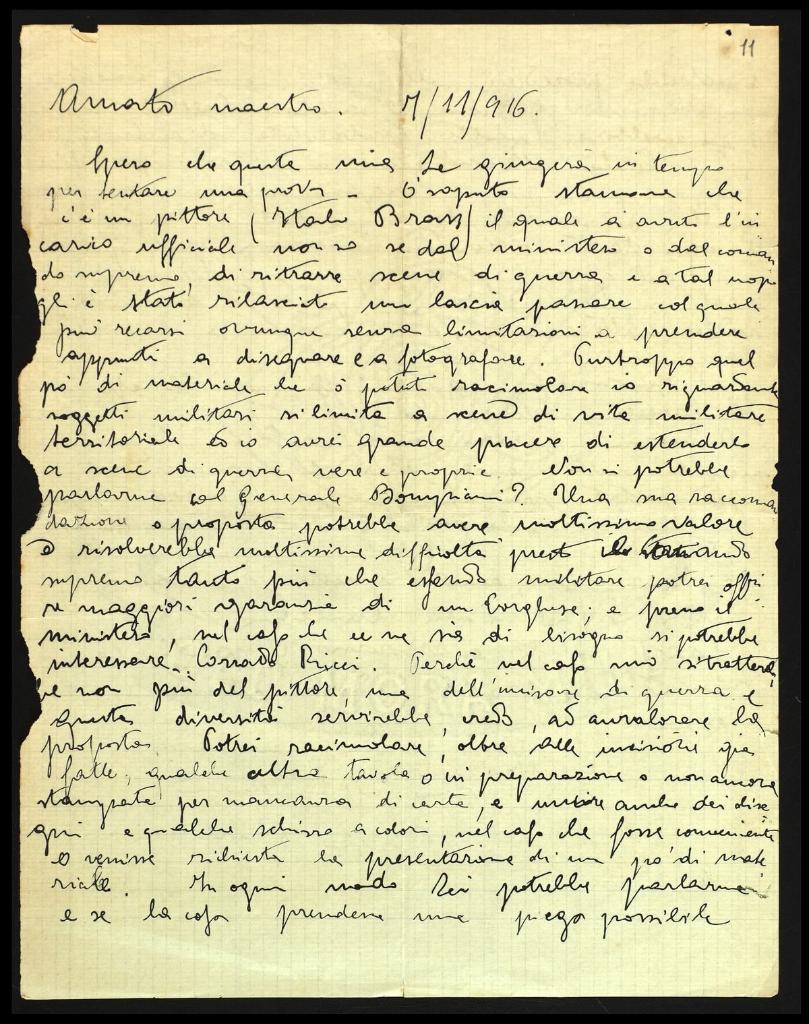 11
Amato maestro. 7/11/916.
Spero che questa mia Le giungerà in tempo
per tentare una prova – Ò saputo stamane che
c'è un pittore (Italo Brass) il quale à avuto l'in
carico ufficiale non so se dal ministero o dal coman
do supremo, di ritrarre scene di guerra e a tal uopo
gli è stato rilasciato un lascia passare col quale
può recarsi ovunque senza limitazioni a prendere
appunti a disegnare e a fotografare. Purtroppo quel
pò di materiale che ò potuto racimolare io riguardante
soggetti militari si limita a scene di vita militare
territoriale ed io avrei grande piacere di estenderlo
a scene di guerra vere e proprie. Non si potrebbe
parlarne col Generale Bompiani? Una sua raccoman
dazione o proposta potrebbe avere moltissimo valore
e risolverebbe moltissime difficoltà presso il Comando
supremo tanto più che essendo militare potrei offri
re maggiori garanzie di un borghese; e presso il
ministero, nel caso che ce ne sia di bisogno si potrebbe
interessare Corrado Ricci. Perchè nel caso mio si trattereb
be non più del pittore, ma dell'incisore di guerra e
questa diversità servirebbe, credo, ad avvalorare la
proposta. Potrei racimolare, oltre alle incisioni già
fatte, qualche altra tavola o in preparazione o non ancora
stampata per mancanza di carta, e unire anche dei dise
gni e qualche schizzo a colori, nel caso che fosse conveniente
o venisse richiesta la presentazione di un pò di mate
riale. In ogni modo Lei potrebbe parlarne
e se la cosa prendesse una piega possibile